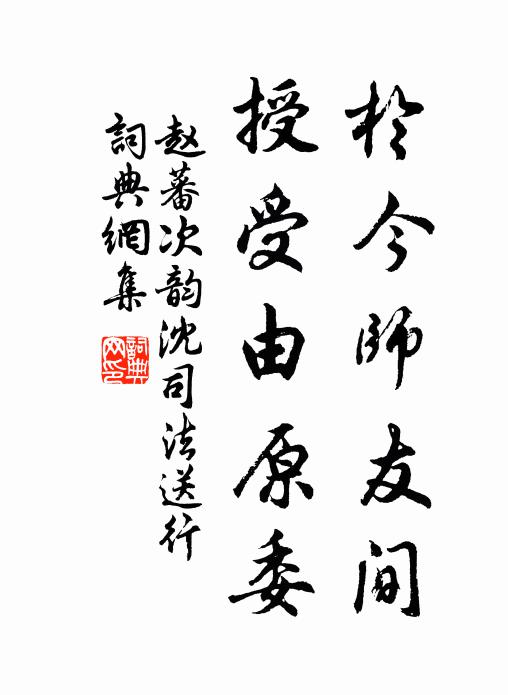 於今師友間
授受由原委
赵蕃次韵沈司法送行
詞典網集
詞典網印